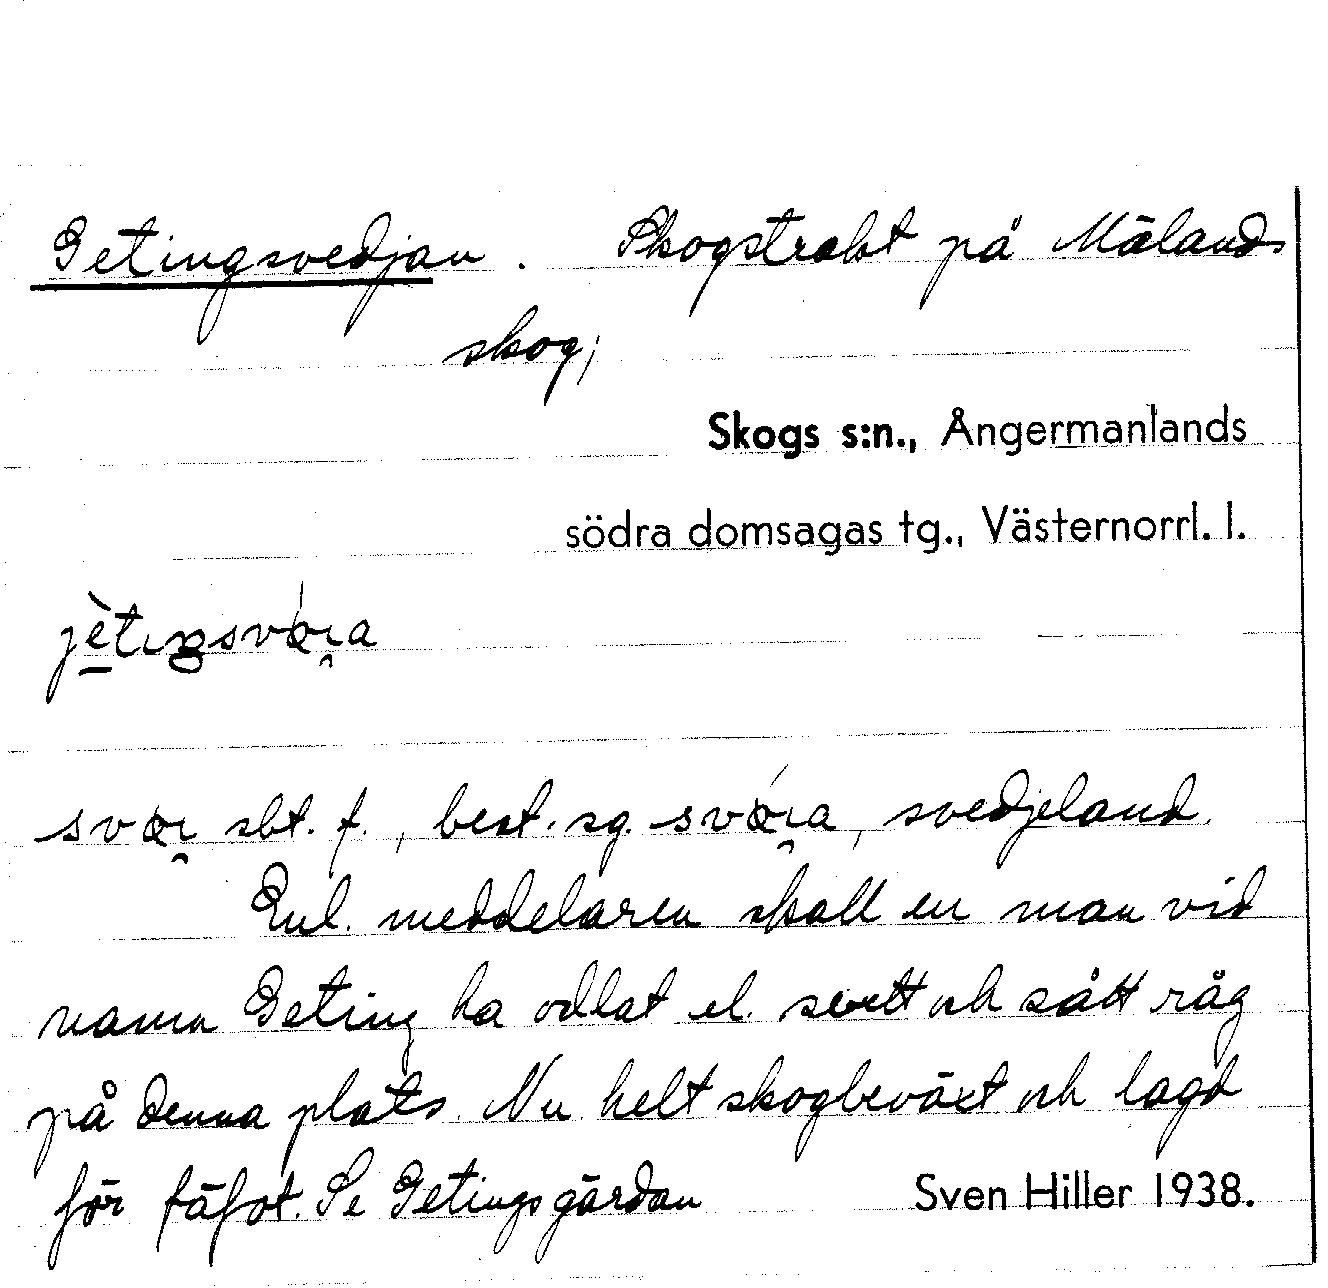 Getingsvedjan. Skogstrakt på Mälands
skog;
Skogs s:n., Ångermanlands
södra domsagas tg., Västernorrl. l.
sbt. f., best. sg. svedjeland.
Enl. meddelaren skall en man vid
namn Geting ha odlat el. svett och sått råg
på denna plats. Nu helt skogbeväxt och lagd
för fäfot. Se Getingsgärdan Sven Hiller 1938.